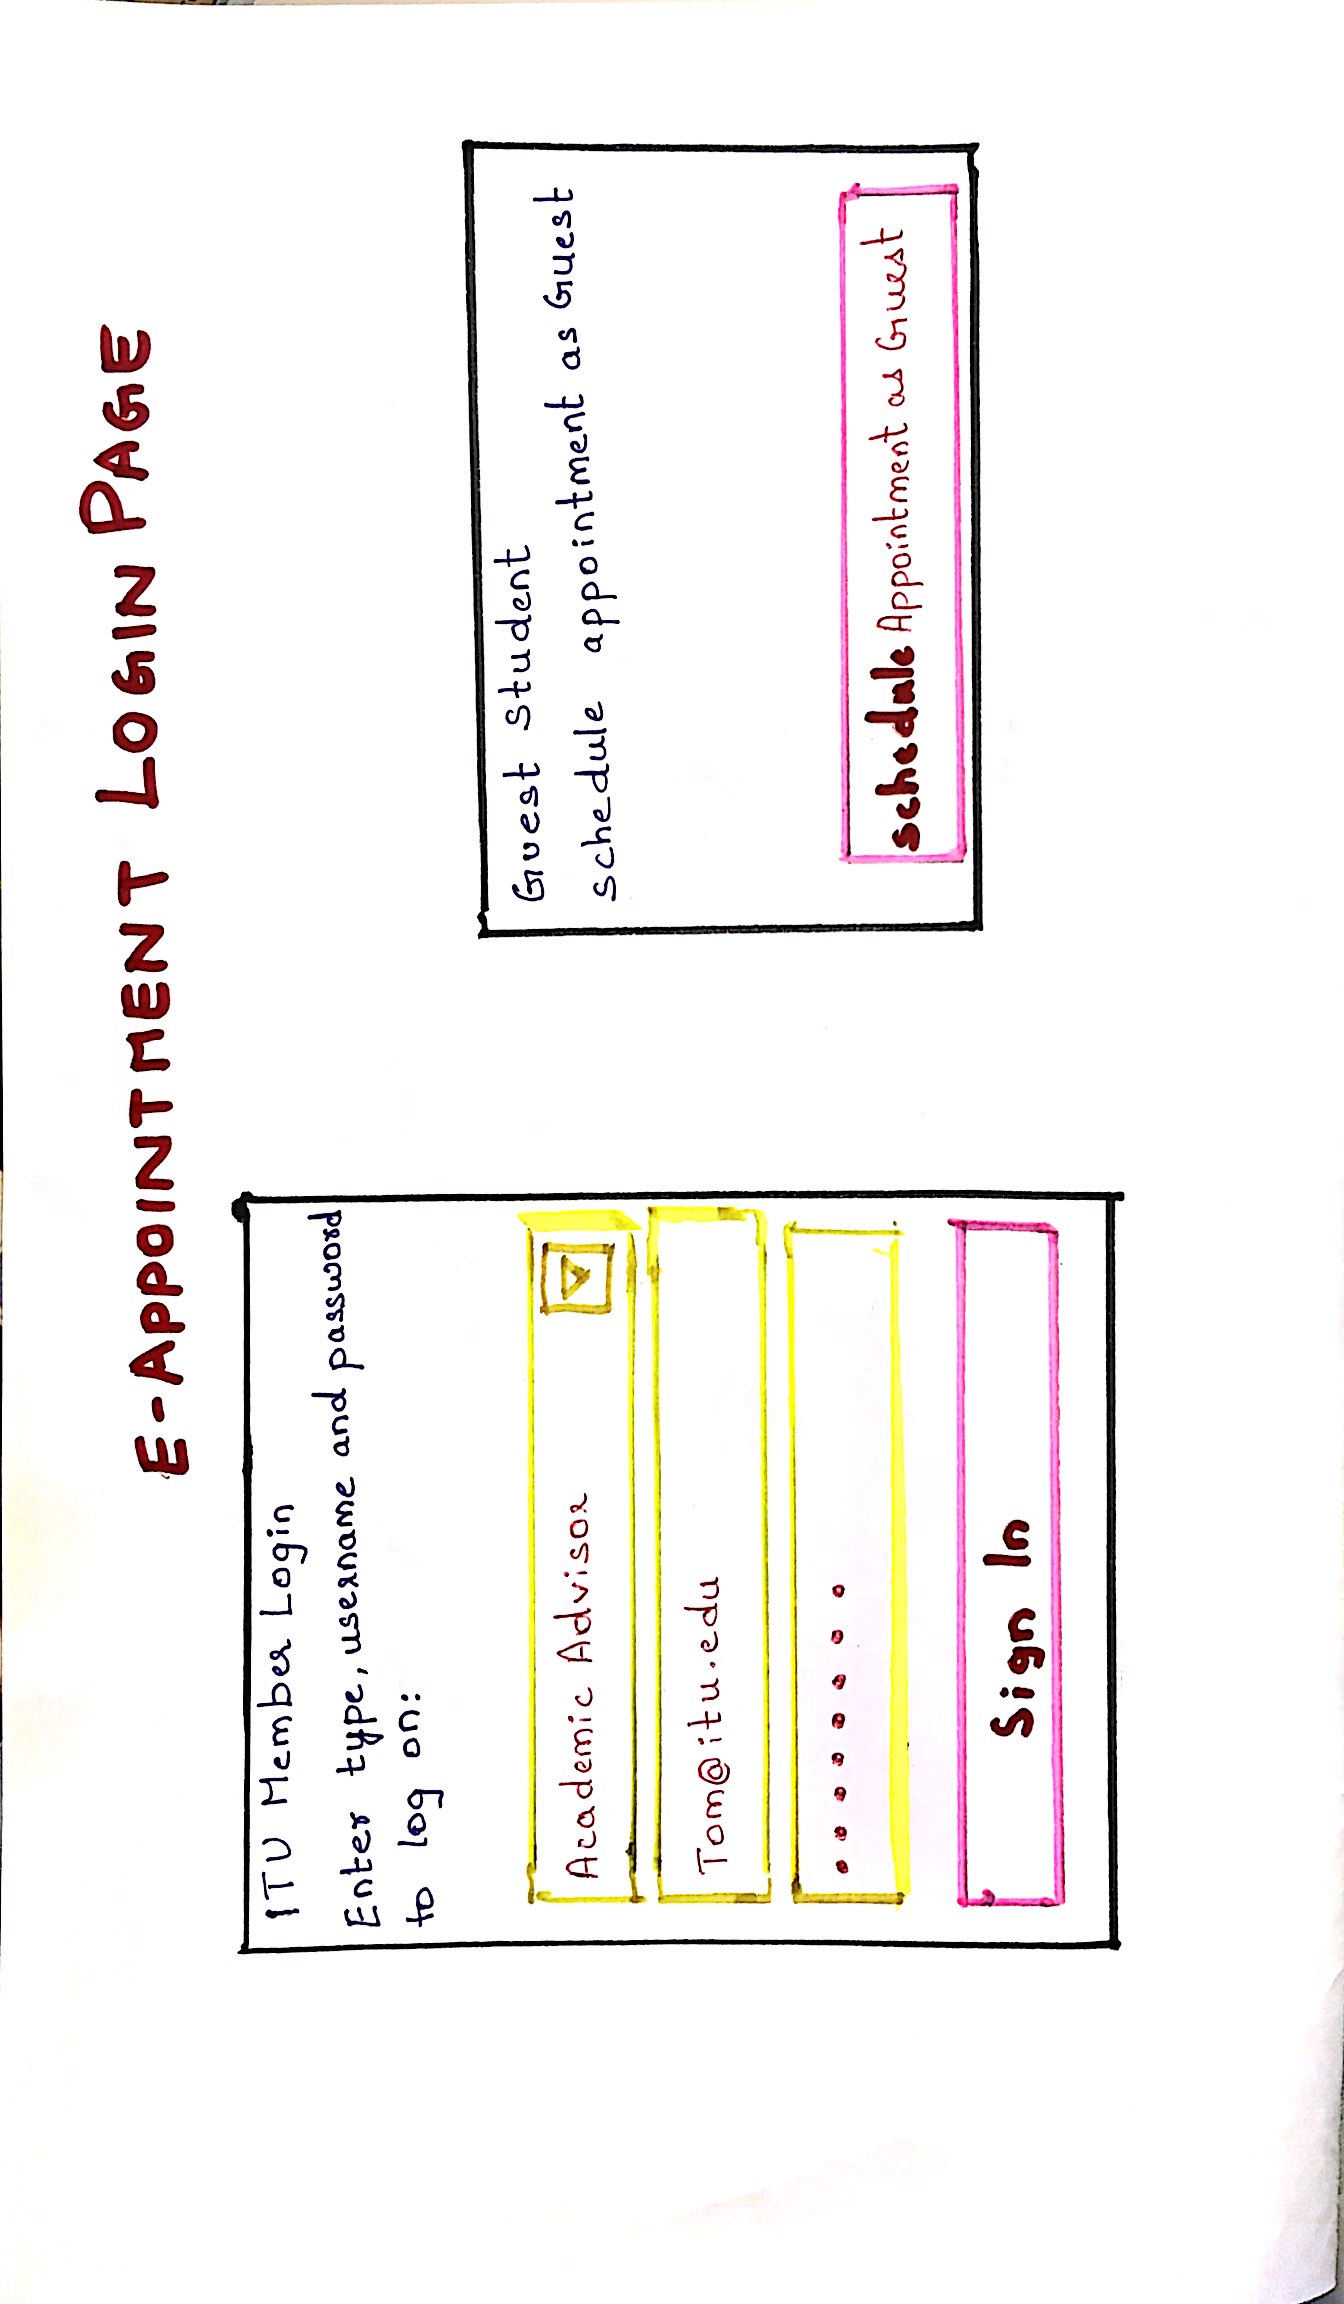 E-APPOINTMENT LOGIN PAGE
ITU Member Login
Enter type, username and password
to log on:
Academic Advisor
Tom@itu.edu
Sign In
Guest student
schedule appointment as Guest
schedule Appointment as Guest